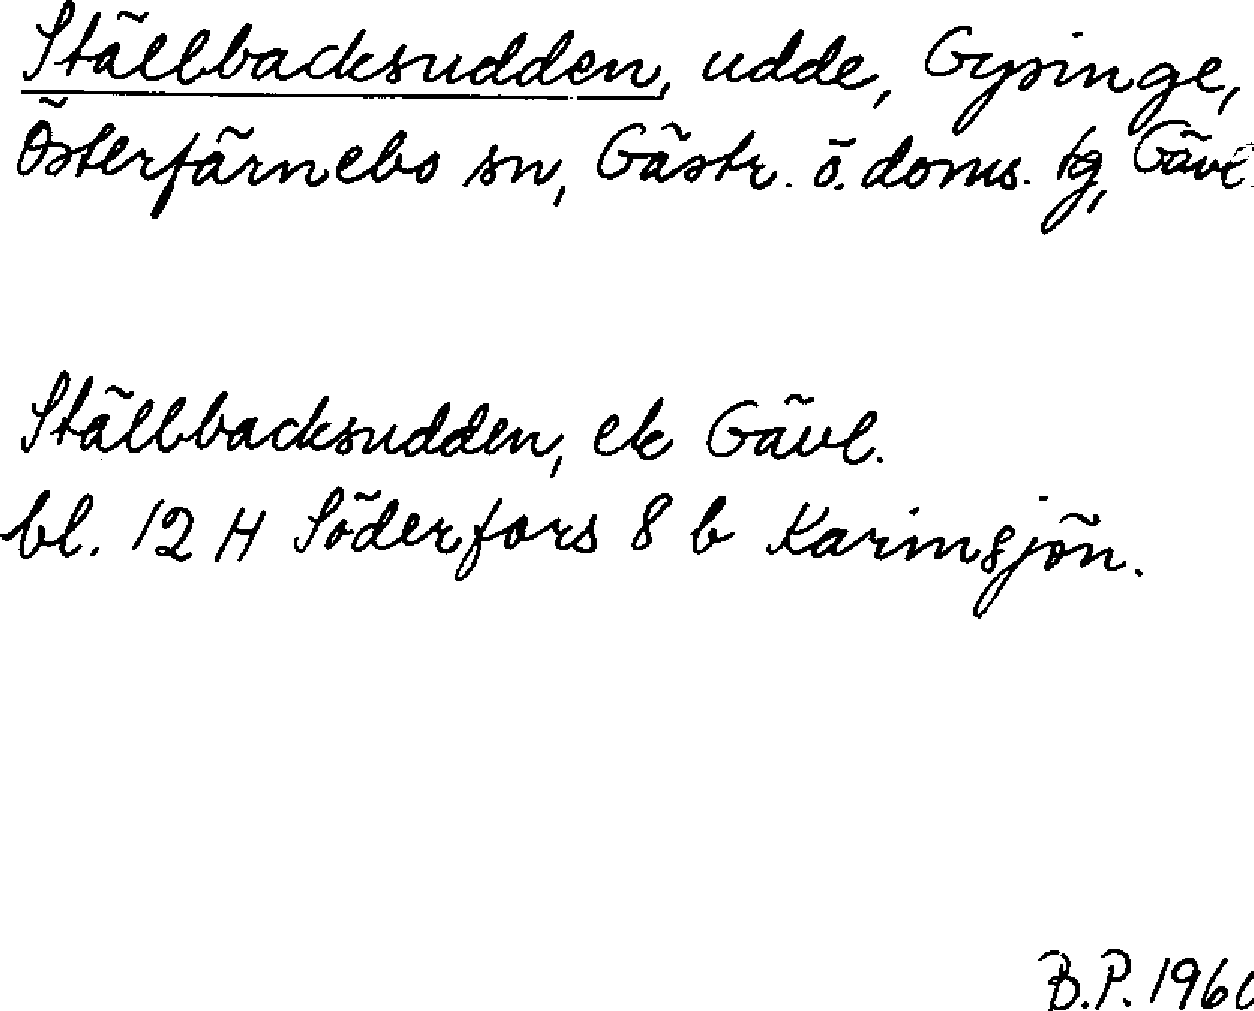 Ställbacksudden, udde, Gysinge,
Österfärnebo sn, Gästr. ö. doms. tg, Gävl.
Ställbacksudden, ek Gävl.
bl. 12 H Söderfors 8 b Karinsjön.
B.P. 196